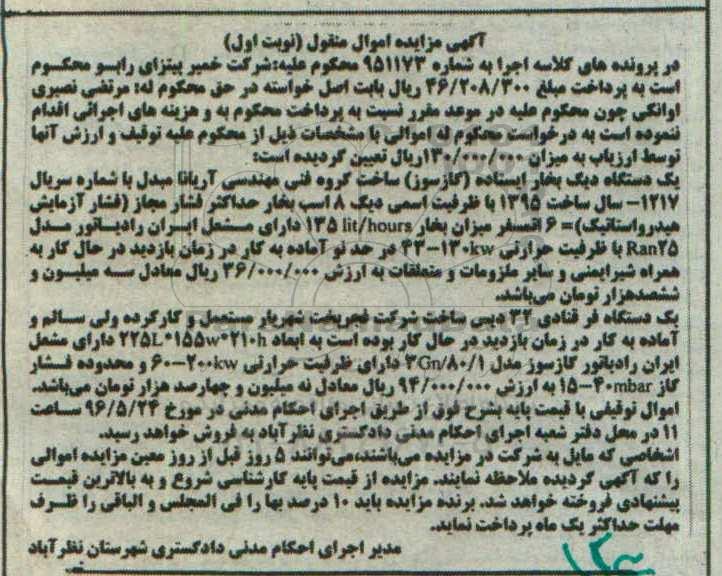 آگهی مزایده اموال منقول (نوبت اول)
در پرونده های کلاسه اجرا به شماره ۹۵۱۱۷۳ محکوم علیه:شرکت خمیر پیتزای رابو محکوم
است به پرداخت مبلغ ۴۶/۲۰۸/۳۰۰ ریال بابت اصل خواسته در حق محکوم له: مرتضی نصیری
اوانکی چون محکوم علیه در موعد مقرر نسبت به پرداخت محکوم به و هزینه های اجرائی اقدام
ننموده است به درخواست محکوم له اموالی با مشخصات ذیل از محکوم علیه توقیف و ارزش آنها
توسط ارزیاب به میزان ۱۳۰/۰۰۰/۰۰۰ریال تعیین گردیده است:
یک دستگاه دیگ بخار ایستاده (گازسوز) ساخت گروه فنی مهندسی آریانا مبدل با شماره سریال
۱۲۱۷- سال ساخت ۱۳۹۵ با ظرفیت اسمی دیگ ۸ اسب بخار حداکثر فشار مجاز (فشار آزمایش
هیدرواستاتیک)= ۶ اتمسفر میزان بخار ۱۳۵ lit/hours دارای مشعل ایران رادیاتور مدل
Ran۲۵ با ظرفیت حرارتی ۴۳-۱۳۰kw در حد نو آماده به کار در زمان بازدید در حال کار به
همراه شیرایمنی و سایر ملزومات و متعلقات به ارزش ۳۶/۰۰۰/۰۰۰ ریال معادل سه میلیون و
ششصدهزار تومان می‌باشد.
یک دستگاه فر قنادی ۳۲ دیسی ساخت شرکت فجرپخت شهریار مستعمل و کارکرده ولی سالم و
آماده به کار در زمان بازدید در حال کار بوده است به ابعاد ۲۲۵L*۱۵۵w*۲۱۰h دارای مشعل
ایران رادیاتور گازسوز مدل ۳Gn/۸۰/۱ دارای ظرفیت حرارتی ۶۰-۲۰۰kw و محدوده فشار
گاز ۱۵-۴۰mbar به ارزش ۹۴/۰۰۰/۰۰۰ ریال معادل نه میلیون و چهارصد هزار تومان می‌باشد.
اموال توقیفی با قیمت پایه بشرح فوق از طریق اجرای احکام مدنی در مورخ ۹۶/۵/۲۴ ساعت
۱۱ در محل دفتر شعبه اجرای احکام مدنی دادگستری نظرآباد به فروش خواهد رسید.
اشخاصی که مایل به شرکت در مزایده می‌باشند،می‌توانند ۵ روز قبل از روز معین مزایده اموالی
را که آگهی گردیده ملاحظه نمایند. مزایده از قیمت پایه کارشناسی شروع و به بالاترین قیمت
پیشنهادی فروخته خواهد شد. برنده مزایده باید ۱۰ درصد بها را فی المجلس و الباقی را ظرف
مهلت حداکثر یک ماه پرداخت نماید.
مدیر اجرای احکام مدنی دادگستری شهرستان نظرآباد